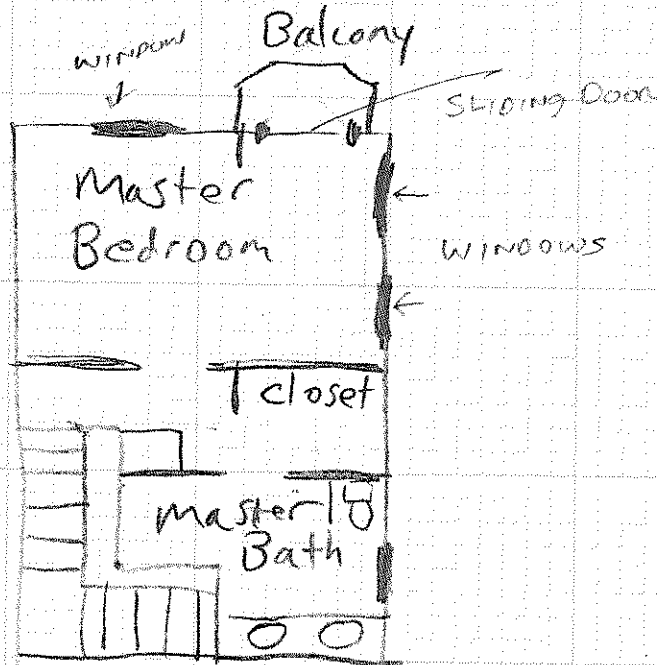 Balcony
WINDOW
SLIDING DOOR
Master
Bedroom
WINDOWS
closet
master
Bath